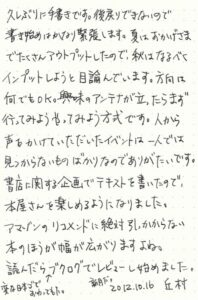 久しぶりに手書きです。後戻りできないので
書き始めはかなり緊張します。夏はおかげさま
でたくさんアウトプットしたので、秋はなるべく
インプットしようと目論んでいます。方向は
何でもOK。興味のアンテナが立ったらまず
行ってみよう。てみよう方式です。人から
声をかけていただいたイベントは一人では
見つからないものばかりなのでありがたいです。
書店に関する企画でテキストを書いたので、
本屋さんを楽しめるようになりました。
アマゾンのリコメンドに絶対引っかからない
本のほうが幅が広がりますよね。
読んだらブクログでレビューし始めました。
変な日本語で
2012.10.16 丘村